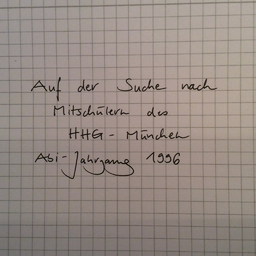 Auf der Suche nach
Mitschülern des
HHG - München
Abi-Jahrgang 1996